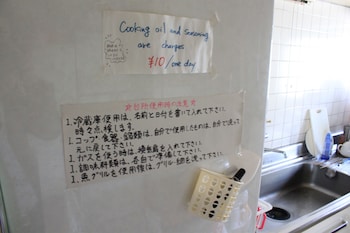 Cooking oil and seasoning
are charges
¥10/one day
☆台所使用時の注意☆
1.冷蔵庫使用は、名前と日付を書いて入れて下さい。
時々点検します。
1.コップ・食器・鍋類は、自分で使用したものは、自分で洗って
元に戻して下さい。
1.ガスを使う時は、換気扇を入れて下さい。
1.調味料類は、各自で準備して下さい。
1.魚グリルを使用後は、グリル・網を洗って下さい。